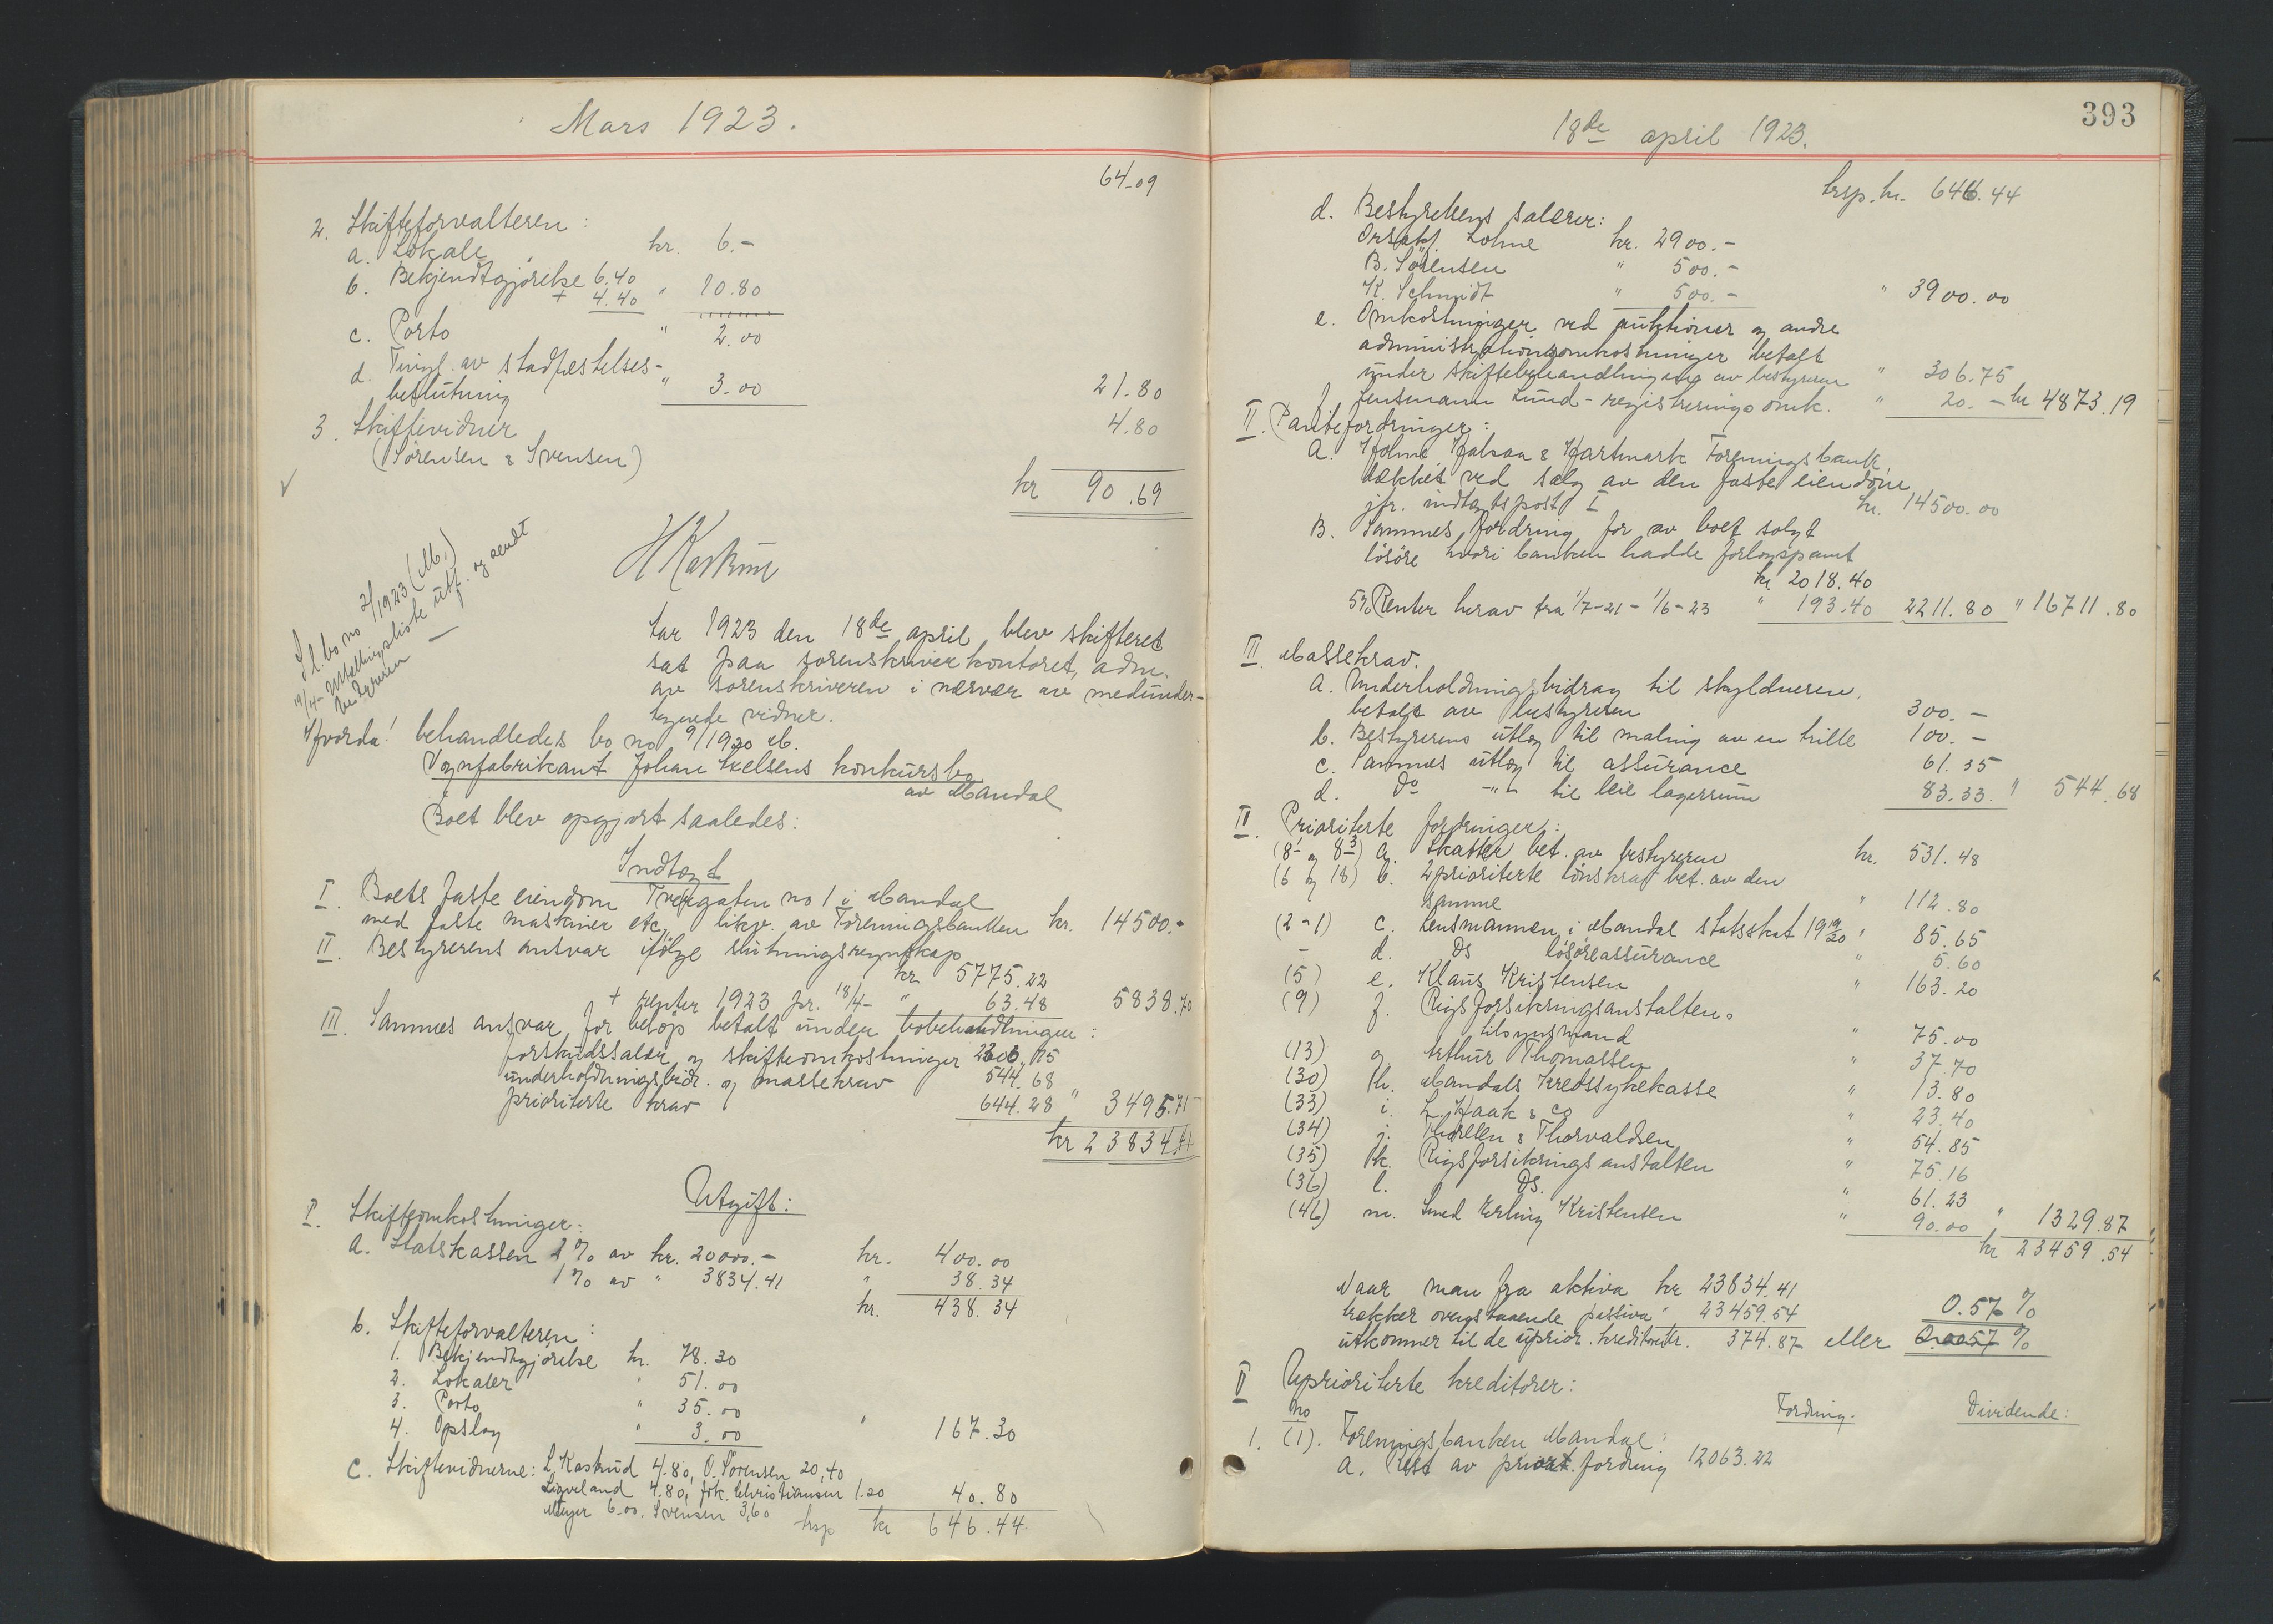 Mars 1923.
64.09
2. Skifteforvalteren:
a. Lokale kr. 6.-
b. Bekjendtgjørelse 6.40
+ 4.40 " 10.80
c. Porto " 2.00
d. Tingl. av stadfæstelses-
beslutning " 3.00 21.80
3. Skiftevidner 4.80
(Sørensen & Svensen)
kr 90.69
Aar 1923 den 18de april blev skifteret
sat paa sorenskriverkontoret, adm.
av sorenskriveren i nærvær av medunder-
tegnede vidner.
Hvorda! behandledes bo no 9/1920 M.
Vognfabrikant Johan Axelsens konkursbo
av Mandal
Boet blev opgjort saaledes:
Indtægt
I. Boets faste eiendom Tvergaten no 1 i Mandal
med faste maskiner etc, likv. av Foreningsbanken kr. 14500.-
II. Bestyrerens ansvar ifølge slutningsregnskap
kr. 5775.22
+ renter 1923 pr. 18/4- " 63.48 5838.70
III. Sammes ansvar for beløp betalt under bobehandlingen:
forskudssalær og skifteomkostninger 2306.75
underholdningsbidr. og massekrav 544.68
prioriterte krav 644.28 " 3495.71
kr 23834.41
Utgift:
I. Skifteomkostninger:
a. Statskassen 2% av kr. 20000.- kr. 400.00
1% av " 3834.41 " 38.34
kr. 438.34
b. Skifteforvalteren:
1. Bekjendtgjørelse kr. 78.30
2. Lokaler " 51.00
3. Porto " 35.00
4. Opslag " 3.00 " 167.30
c. Skiftevidnerne: L. Kaskud 4.80, O. Sørensen 20,40
Ligveland 4.80, frk. Christiansen 1.20 40.80
Meyer 6.00, Svensen 3,60
trsp kr 646.44
Sl. bo no 2/1923 (M.)
19/4- Utlodningsliste utf. og sendt
bestyreren
393
18de april 1923.
trsp. kr. 646.44
d. Bestyrelsens salærer:
Orsakf. Lohne kr. 2900.-
B. Sørensen " 500.-
K. Schmidt " 500.- " 3900.00
e. Omkostninger ved auktioner og andre
administrationsomkostninger betalt
under skiftebehandlingen av bestyreren " 306.75
f. Lensmann Lund - registreringsomk. " 20.- kr 4873.19
II. Pantefordringer:
A. Holme Halsaa & Hartmark Foreningsbank,
dækket ved salg av den faste eiendom
jfr. indtægtspost I kr. 14500.00
B. Sammes fordring for av boet solgt
løsøre hvori banken hadde forlagspant
kr. 2018.40
5% Renter herav fra 1/7-21 - 1/6-23 " 193.40 2211.80 " 16711.80
III. Massekrav.
a. Underholdningsbidrag til skyldneren,
betalt av bestyreren 300.-
b. Bestyrerens utlæg til maling av en trille 100.-
c. Sammes utlæg til assurance 61.35
d. Do -"- til leie lagerrum 83.33. " 544.68
IV. Prioriterte fordringer:
(8-1 og 8-3) a. Skatter bet. av bestyreren kr. 531.48
(6 og 18) b. 2 prioriterte lønskrav bet. av den
samme " 112.80
(2-1) c. Lensmannen i Mandal statsskat 1919/20 " 85.65
- d. Ds løsøreassurance " 5.60
(5) e. Klaus Kristensen " 163.20
(9) f. Rigsforsikringsanstalten.
tilsynsmand " 75.00
(13) g. Arthur Thomassen " 37.70
(30) h. Mandals Kredssykekasse " 13.80
(33) i. L. Haak & Co " 23.40
(34) j. Thorsen & Thorvaldsen " 54.85
(35) k. Rigsforsikringsanstalten " 75.16
(36) l. Ds. " 61.23
(46) m. Smed Erling Kristensen " 90.00 " 1329.87
kr 23459.54
Naar man fra aktiva kr 23834.41
trækker ovenstaaende passiva " 23459.54 0.57 %
utkommer til de uprior. kreditorer kr. 374.87 eller 0.0057 %
V Uprioriterte kreditorer:
no Fordring. Dividende:
1. (1). Foreningsbanken Mandal:
a. Rest av priorit. fordring 12063.22